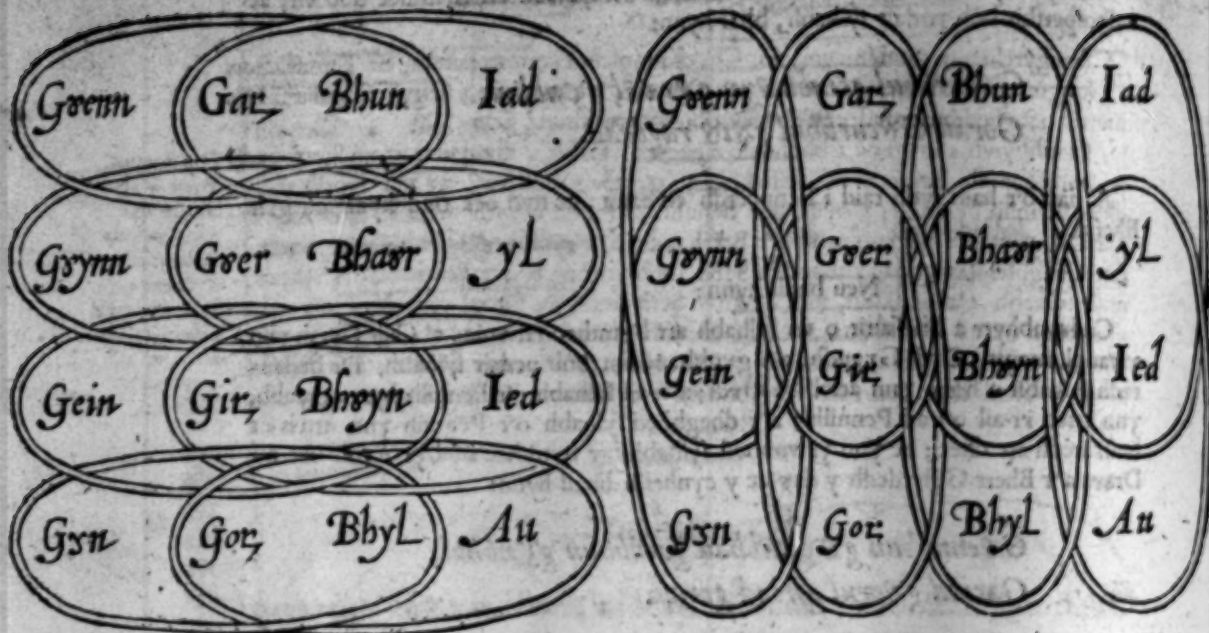 Gỽenn Gar, Bhun Iad
Gỽynn Gỽer Bhaỽr yL
Gein Gir, Bhỽyn Ied
Gỽn Gor, BhyL Au
Gỽenn Gar, Bhun Iad
Gỽynn Gỽer Bhaỽr yL
Gein Gir, Bhỽyn Ied
Gỽn Gor, BhyL Au